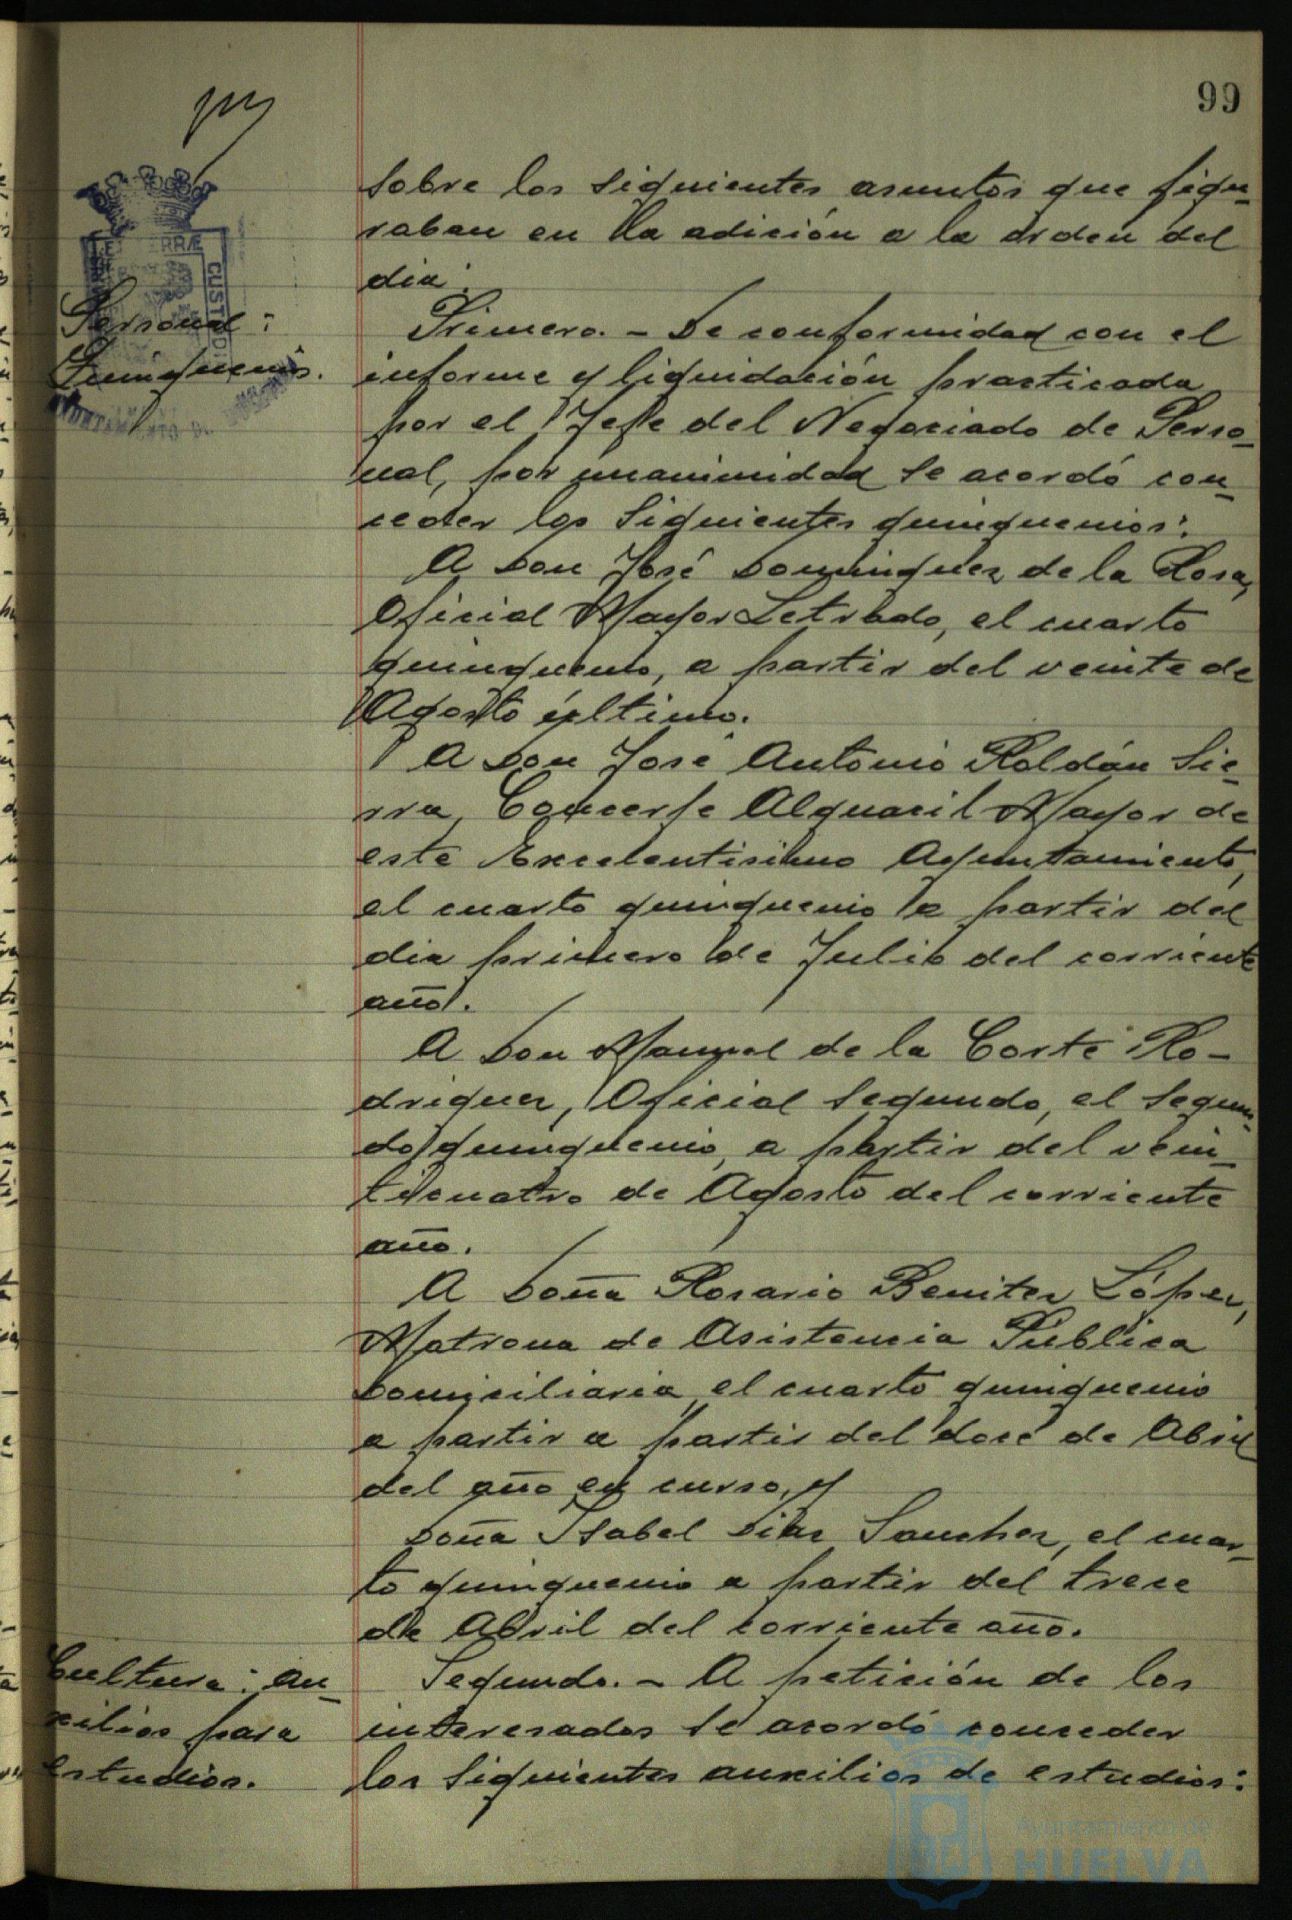 99
sobre los siguientes asuntos que figu-
raban en la adición a la orden del
dia:
Personal:
Quinquenios.
Primero. - De conformidad con el
informe y liquidación practicada
por el Jefe del Negociado de Perso-
nal, por unanimidad se acordó con-
ceder los siguientes quinquenios:
A Don José Dominguez de la Rosa,
Oficial Mayor Letrado, el cuarto
quinquenio, a partir del veinte de
Agosto último.
A Don José Antonio Roldán Sie-
rra, Conserje Alguacil Mayor de
este Excelentisimo Ayuntamiento,
el cuarto quinquenio a partir del
dia primero de Julio del corriente
año.
A Don Manuel de la Corte Ro-
driguez, Oficial Segundo, el segun-
do quinquenio, a partir del vein-
ticuatro de Agosto del corriente
año.
A Doña Rosario Benitez López,
Matrona de Asistencia Pública
Domiciliaria, el cuarto quinquenio
a partir a partir del doce de Abril
del año en curso, y
Doña Isabel Diaz Sanchez, el cuar-
to quinquenio a partir del trece
de Abril del corriente año.
Cultura: au-
xilios para
estudios.
Segundo. - A petición de los
interesados se acordó conceder
los siguientes auxilios de estudios:
Ayuntamiento de
HUELVA